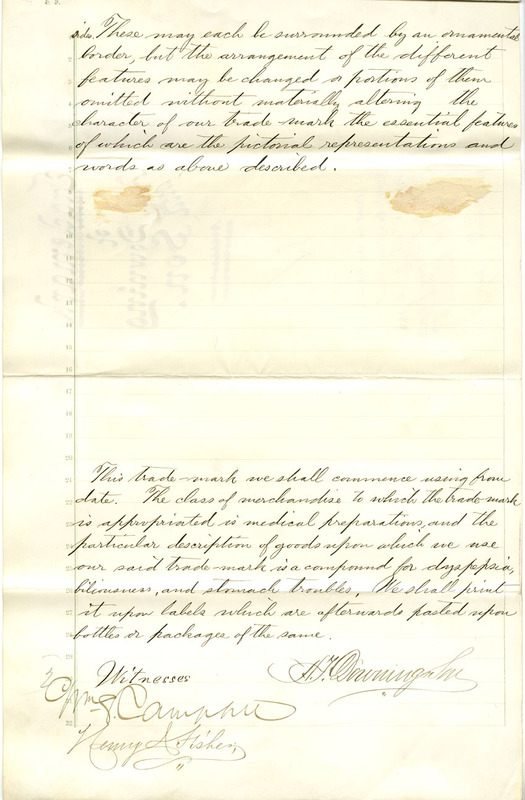 sides. These may each be surrounded by an ornamental
border, but the arrangement of the different
features may be changed or portions of them
omitted without materially altering the
character of our trade mark the essential features
of which are the pictorial representations and
words as above described.
This trade-mark we shall commence using from
date. The class of merchandise to which the trade mark
is appropriated is medical preparations, and the
particular description of goods upon which we use
our said trade-mark is a compound for dyspepsia,
biliousness, and stomach troubles. We shall print
it upon labels which are afterwards pasted upon
bottles or packages of the same.
Witnesses
A. T. Downing
Campbell
Henry Fisher